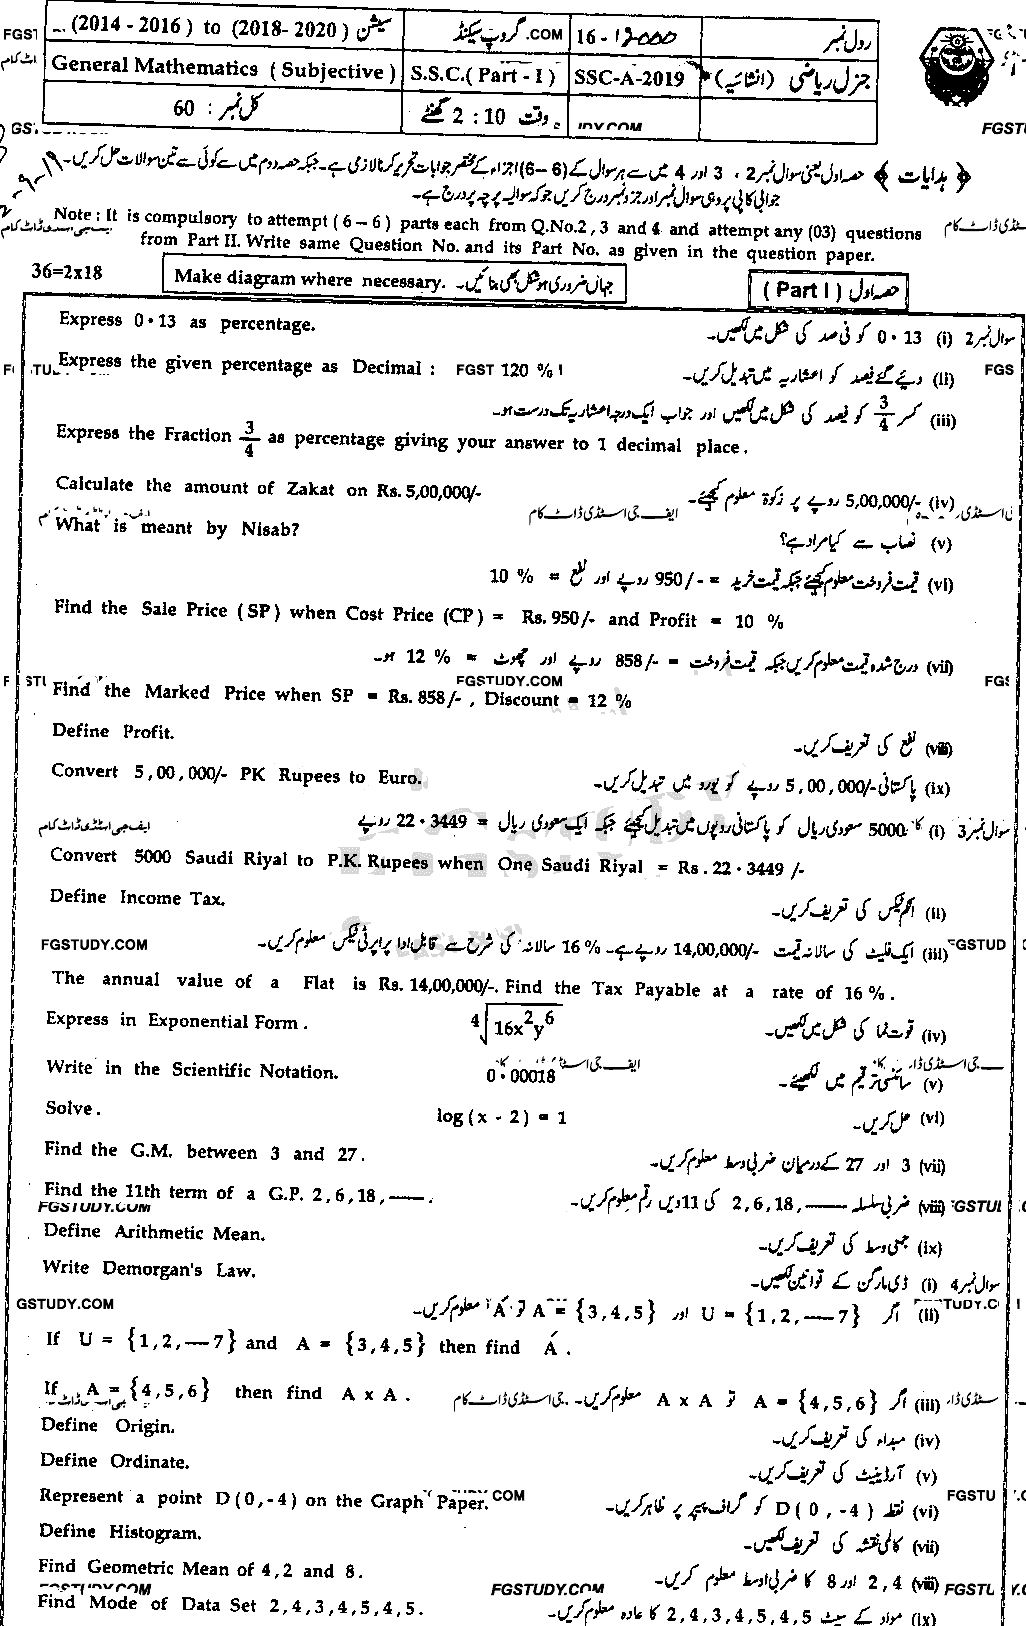 ... (2014 - 2016) to (2018- 2020) سیشن
گروپ سیکنڈ .COM
16 - 12000
رول نمبر
FGST
General Mathematics (Subjective)
S.S.C.(Part - I)
SSC-A-2019
جنرل ریاضی (انشائیہ)
کل نمبر : 60
وقت 2 : 10 گھنٹے
FGSTU
﴿ ہدایات ﴾ حصہ اول یعنی سوال نمبر 2 ، 3 اور 4 میں سے ہر سوال کے (6-6) اجزاء کے مختصر جوابات تحریر کرنا لازمی ہے۔ جبکہ حصہ دوم میں سے کوئی سے تین سوالات حل کریں۔
جوابی کاپی پر وہی سوال نمبر اور جزو نمبر درج کریں جو کہ سوالیہ پرچہ پر درج ہے۔
Note: It is compulsory to attempt (6-6) parts each from Q.No.2, 3 and 4 and attempt any (03) questions
from Part II. Write same Question No. and its Part No. as given in the question paper.
36=2x18
Make diagram where necessary. جہاں ضروری ہو شکل بھی بنائیں۔
(Part I) حصہ اول
سوال نمبر 2 (i) 0·13 کو فی صد کی شکل میں لکھیں۔
Express 0·13 as percentage.
(ii) دیئے گئے فیصد کو اعشاریہ میں تبدیل کریں۔
Express the given percentage as Decimal : FGST 120 %
FGS
(iii) کسر 3/4 کو فیصد کی شکل میں لکھیں اور جواب ایک درجہ اعشاریہ تک درست ہو۔
Express the Fraction 3/4 as percentage giving your answer to 1 decimal place.
(iv) 5,00,000/- روپے پر زکوٰۃ معلوم کیجئے۔
Calculate the amount of Zakat on Rs. 5,00,000/-
ایف جی اسٹڈی ڈاٹ کام
What is meant by Nisab?
(v) نصاب سے کیا مراد ہے؟
(vi) قیمت فروخت معلوم کیجئے جبکہ قیمت خرید = 950/- روپے اور نفع = 10 %
Find the Sale Price (SP) when Cost Price (CP) = Rs. 950/- and Profit = 10 %
(vii) درج شدہ قیمت معلوم کریں جبکہ قیمت فروخت = 858/- روپے اور چھوٹ = 12 % ہو۔
FGSTUDY.COM
Find the Marked Price when SP = Rs. 858/- , Discount = 12 %
Define Profit.
(viii) نفع کی تعریف کریں۔
Convert 5,00,000/- PK Rupees to Euro.
(ix) پاکستانی 5,00,000/- روپے کو یورو میں تبدیل کریں۔
سوال نمبر 3 (i) 5000 سعودی ریال کو پاکستانی روپوں میں تبدیل کیجئے جبکہ ایک سعودی ریال = 22·3449 روپے
ایف جی اسٹڈی ڈاٹ کام
Convert 5000 Saudi Riyal to P.K. Rupees when One Saudi Riyal = Rs. 22·3449 /-
Define Income Tax.
(ii) انکم ٹیکس کی تعریف کریں۔
FGSTUDY.COM
(iii) ایک فلیٹ کی سالانہ قیمت 14,00,000/- روپے ہے۔ 16 % سالانہ کی شرح سے قابل ادا پراپرٹی ٹیکس معلوم کریں۔
The annual value of a Flat is Rs. 14,00,000/-. Find the Tax Payable at a rate of 16 %.
Express in Exponential Form. ⁴√16x²y⁶
(iv) قوت نما کی شکل میں لکھیں۔
Write in the Scientific Notation. 0·00018
(v) سائنسی ترقیم میں لکھیئے۔
Solve. log (x - 2) = 1
(vi) حل کریں۔
Find the G.M. between 3 and 27.
(vii) 3 اور 27 کے درمیان ضربی وسط معلوم کریں۔
Find the 11th term of a G.P. 2,6,18,——.
(viii) ضربی سلسلہ 2,6,18,—— کی 11ویں رقم معلوم کریں۔
FGSTUDY.COM
Define Arithmetic Mean.
(ix) جمعی وسط کی تعریف کریں۔
Write Demorgan's Law.
سوال نمبر 4 (i) ڈی مارگن کے قوانین لکھیں۔
GSTUDY.COM
(ii) اگر U = {1,2,—7} اور A = {3,4,5} تو A′ معلوم کریں۔
If U = {1,2,—7} and A = {3,4,5} then find A′ .
(iii) اگر A = {4,5,6} تو A x A معلوم کریں۔
If A = {4,5,6} then find A x A .
Define Origin.
(iv) مبداء کی تعریف کریں۔
Define Ordinate.
(v) آرڈینیٹ کی تعریف کریں۔
Represent a point D(0,-4) on the Graph Paper. COM
(vi) نقطہ D(0,-4) کو گراف پیپر پر ظاہر کریں۔
FGSTU
Define Histogram.
(vii) کالمی نقشہ کی تعریف لکھیں۔
Find Geometric Mean of 4,2 and 8.
(viii) 2,4 اور 8 کا ضربی اوسط معلوم کریں۔
FGSTUDY.COM
FGSTUDY.COM
Find Mode of Data Set 2,4,3,4,5,4,5.
(ix) مواد کے سیٹ 2,4,3,4,5,4,5 کا عادہ معلوم کریں۔